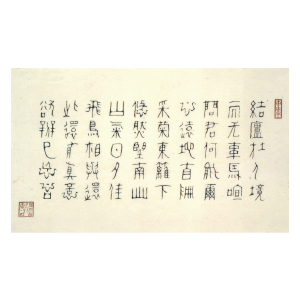 結廬在人境
而无車馬喧
問君何能爾
心遠地自偏
采菊東籬下
悠然望南山
山氣日夕佳
飛鳥相與還
此還有真意
欲辯已忘言